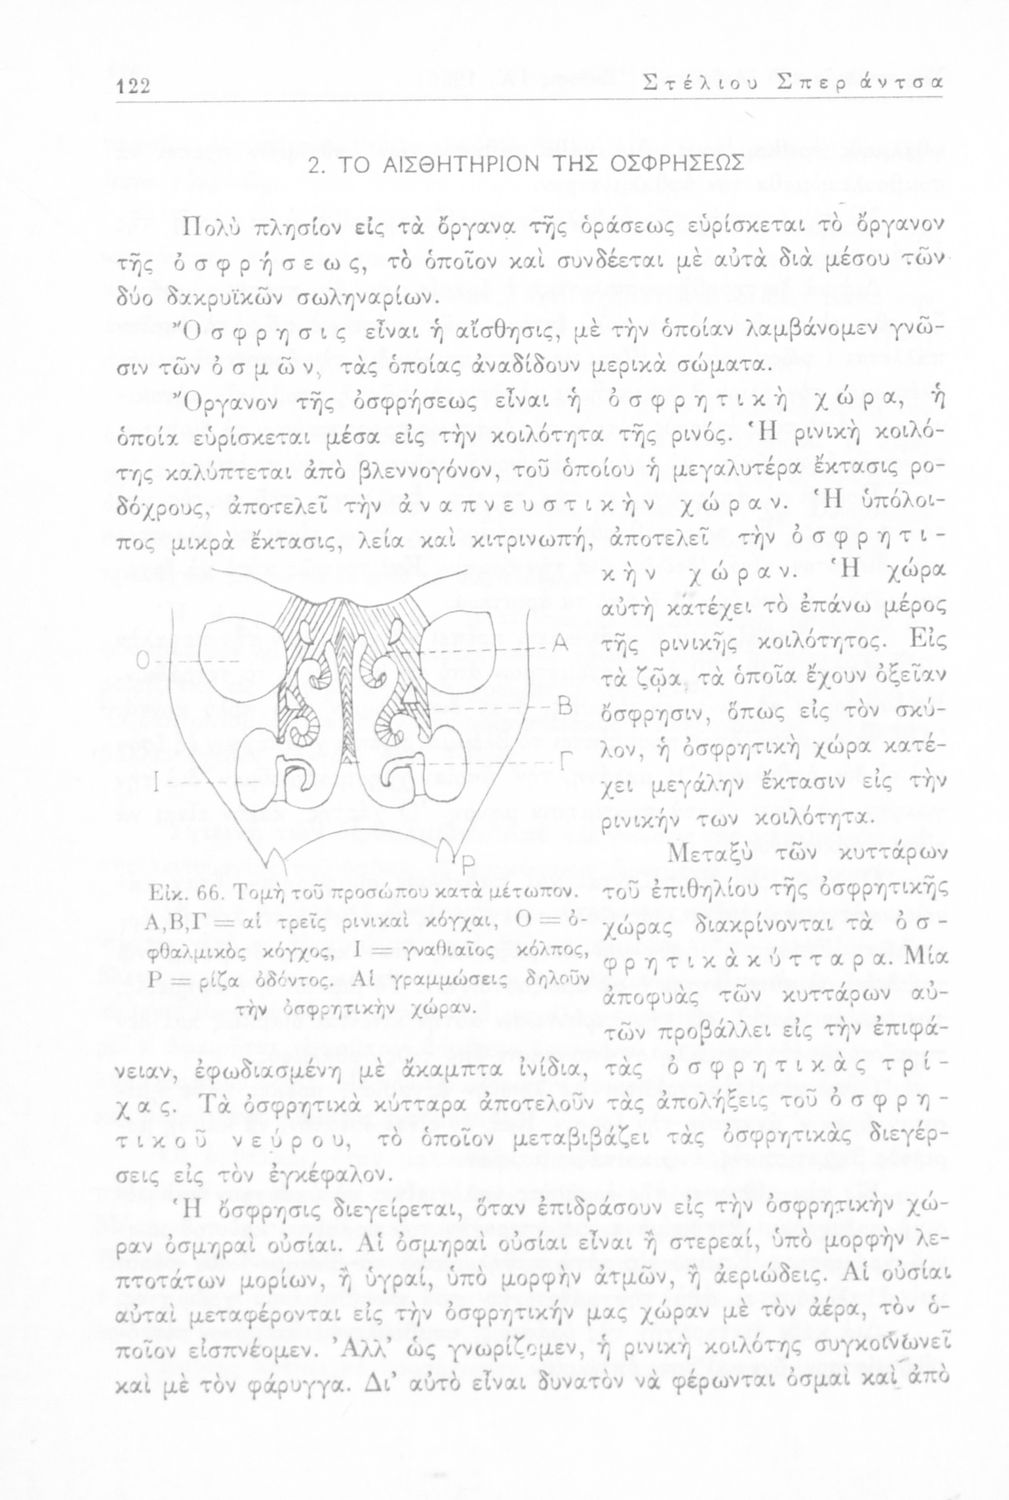 122 Στέλιου Σπεράντσα
2. ΤΟ ΑΙΣΘΗΤΗΡΙΟΝ ΤΗΣ ΟΣΦΡΗΣΕΩΣ
Πολὺ πλησίον εἰς τὰ ὄργανα τῆς ὁράσεως εὑρίσκεται τὸ ὄργανον
τῆς ὀσφρήσεως, τὸ ὁποῖον καὶ συνδέεται μὲ αὐτὰ διὰ μέσου τῶν
δύο δακρυϊκῶν σωληναρίων.
Ὄσφρησις εἶναι ἡ αἴσθησις, μὲ τὴν ὁποίαν λαμβάνομεν γνῶ-
σιν τῶν ὀσμῶν, τὰς ὁποίας ἀναδίδουν μερικὰ σώματα.
Ὄργανον τῆς ὀσφρήσεως εἶναι ἡ ὀσφρητικὴ χώρα, ἡ
ὁποία εὑρίσκεται μέσα εἰς τὴν κοιλότητα τῆς ρινός. Ἡ ρινικὴ κοιλό-
της καλύπτεται ἀπὸ βλεννογόνον, τοῦ ὁποίου ἡ μεγαλυτέρα ἔκτασις ρο-
δόχρους, ἀποτελεῖ τὴν ἀναπνευστικὴν χώραν. Ἡ ὑπόλοι-
πος μικρὰ ἔκτασις, λεία καὶ κιτρινωπή, ἀποτελεῖ τὴν ὀσφρητι-
κὴν χώραν. Ἡ χώρα
αὐτὴ κατέχει τὸ ἐπάνω μέρος
τῆς ρινικῆς κοιλότητος. Εἰς
τὰ ζῷα, τὰ ὁποῖα ἔχουν ὀξεῖαν
ὄσφρησιν, ὅπως εἰς τὸν σκύ-
λον, ἡ ὀσφρητικὴ χώρα κατέ-
χει μεγάλην ἔκτασιν εἰς τὴν
ρινικήν των κοιλότητα.
Ο
Ι
Α
Β
Γ
Ρ
Εἰκ. 66. Τομὴ τοῦ προσώπου κατὰ μέτωπον.
Α,Β,Γ = αἱ τρεῖς ρινικαὶ κόγχαι, Ο = ὀ-
φθαλμικὸς κόγχος, Ι = γναθιαῖος κόλπος,
Ρ = ρίζα ὀδόντος. Αἱ γραμμώσεις δηλοῦν
τὴν ὀσφρητικὴν χώραν.
Μεταξὺ τῶν κυττάρων
τοῦ ἐπιθηλίου τῆς ὀσφρητικῆς
χώρας διακρίνονται τὰ ὀσ-
φρητικὰ κύτταρα. Μία
ἀποφυὰς τῶν κυττάρων αὐ-
τῶν προβάλλει εἰς τὴν ἐπιφά-
νειαν, ἐφωδιασμένη μὲ ἄκαμπτα ἰνίδια, τὰς ὀσφρητικὰς τρί-
χας. Τὰ ὀσφρητικὰ κύτταρα ἀποτελοῦν τὰς ἀπολήξεις τοῦ ὀσφρη-
τικοῦ νεύρου, τὸ ὁποῖον μεταβιβάζει τὰς ὀσφρητικὰς διεγέρ-
σεις εἰς τὸν ἐγκέφαλον.
Ἡ ὄσφρησις διεγείρεται, ὅταν ἐπιδράσουν εἰς τὴν ὀσφρητικὴν χώ-
ραν ὀσμηραὶ οὐσίαι. Αἱ ὀσμηραὶ οὐσίαι εἶναι ἢ στερεαί, ὑπὸ μορφὴν λε-
πτοτάτων μορίων, ἢ ὑγραί, ὑπὸ μορφὴν ἀτμῶν, ἢ ἀεριώδεις. Αἱ οὐσίαι
αὐταὶ μεταφέρονται εἰς τὴν ὀσφρητικήν μας χώραν μὲ τὸν ἀέρα, τὸν ὁ-
ποῖον εἰσπνέομεν. Ἀλλ' ὡς γνωρίζομεν, ἡ ρινικὴ κοιλότης συγκοινωνεῖ
καὶ μὲ τὸν φάρυγγα. Δι' αὐτὸ εἶναι δυνατὸν νὰ φέρωνται ὀσμαὶ καὶ ἀπὸ